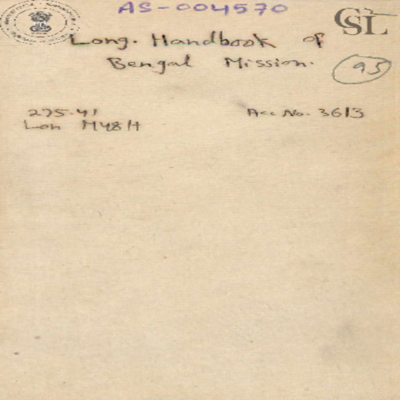 AS-004570
CSL
Long. Handbook of
Bengal Mission.
95
275-41
Acc No. 3613
Lon M48H